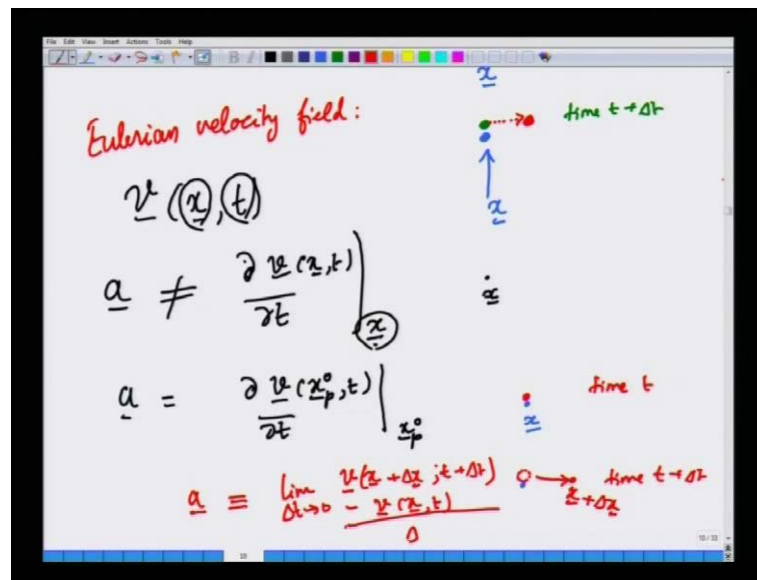 File Edit View Insert Actions Tools Help
x
Eulerian velocity field:
time t+Δt
v (x, t)
x
a ≠ ∂ v (x,t) / ∂t | x
x
a = ∂ v (x_p^0, t) / ∂t | x_p^0
time t
x
a ≡ lim Δt→0 v(x+Δx ; t+Δt) - v (x,t) / Δ
time t+Δt
x+Δx
10